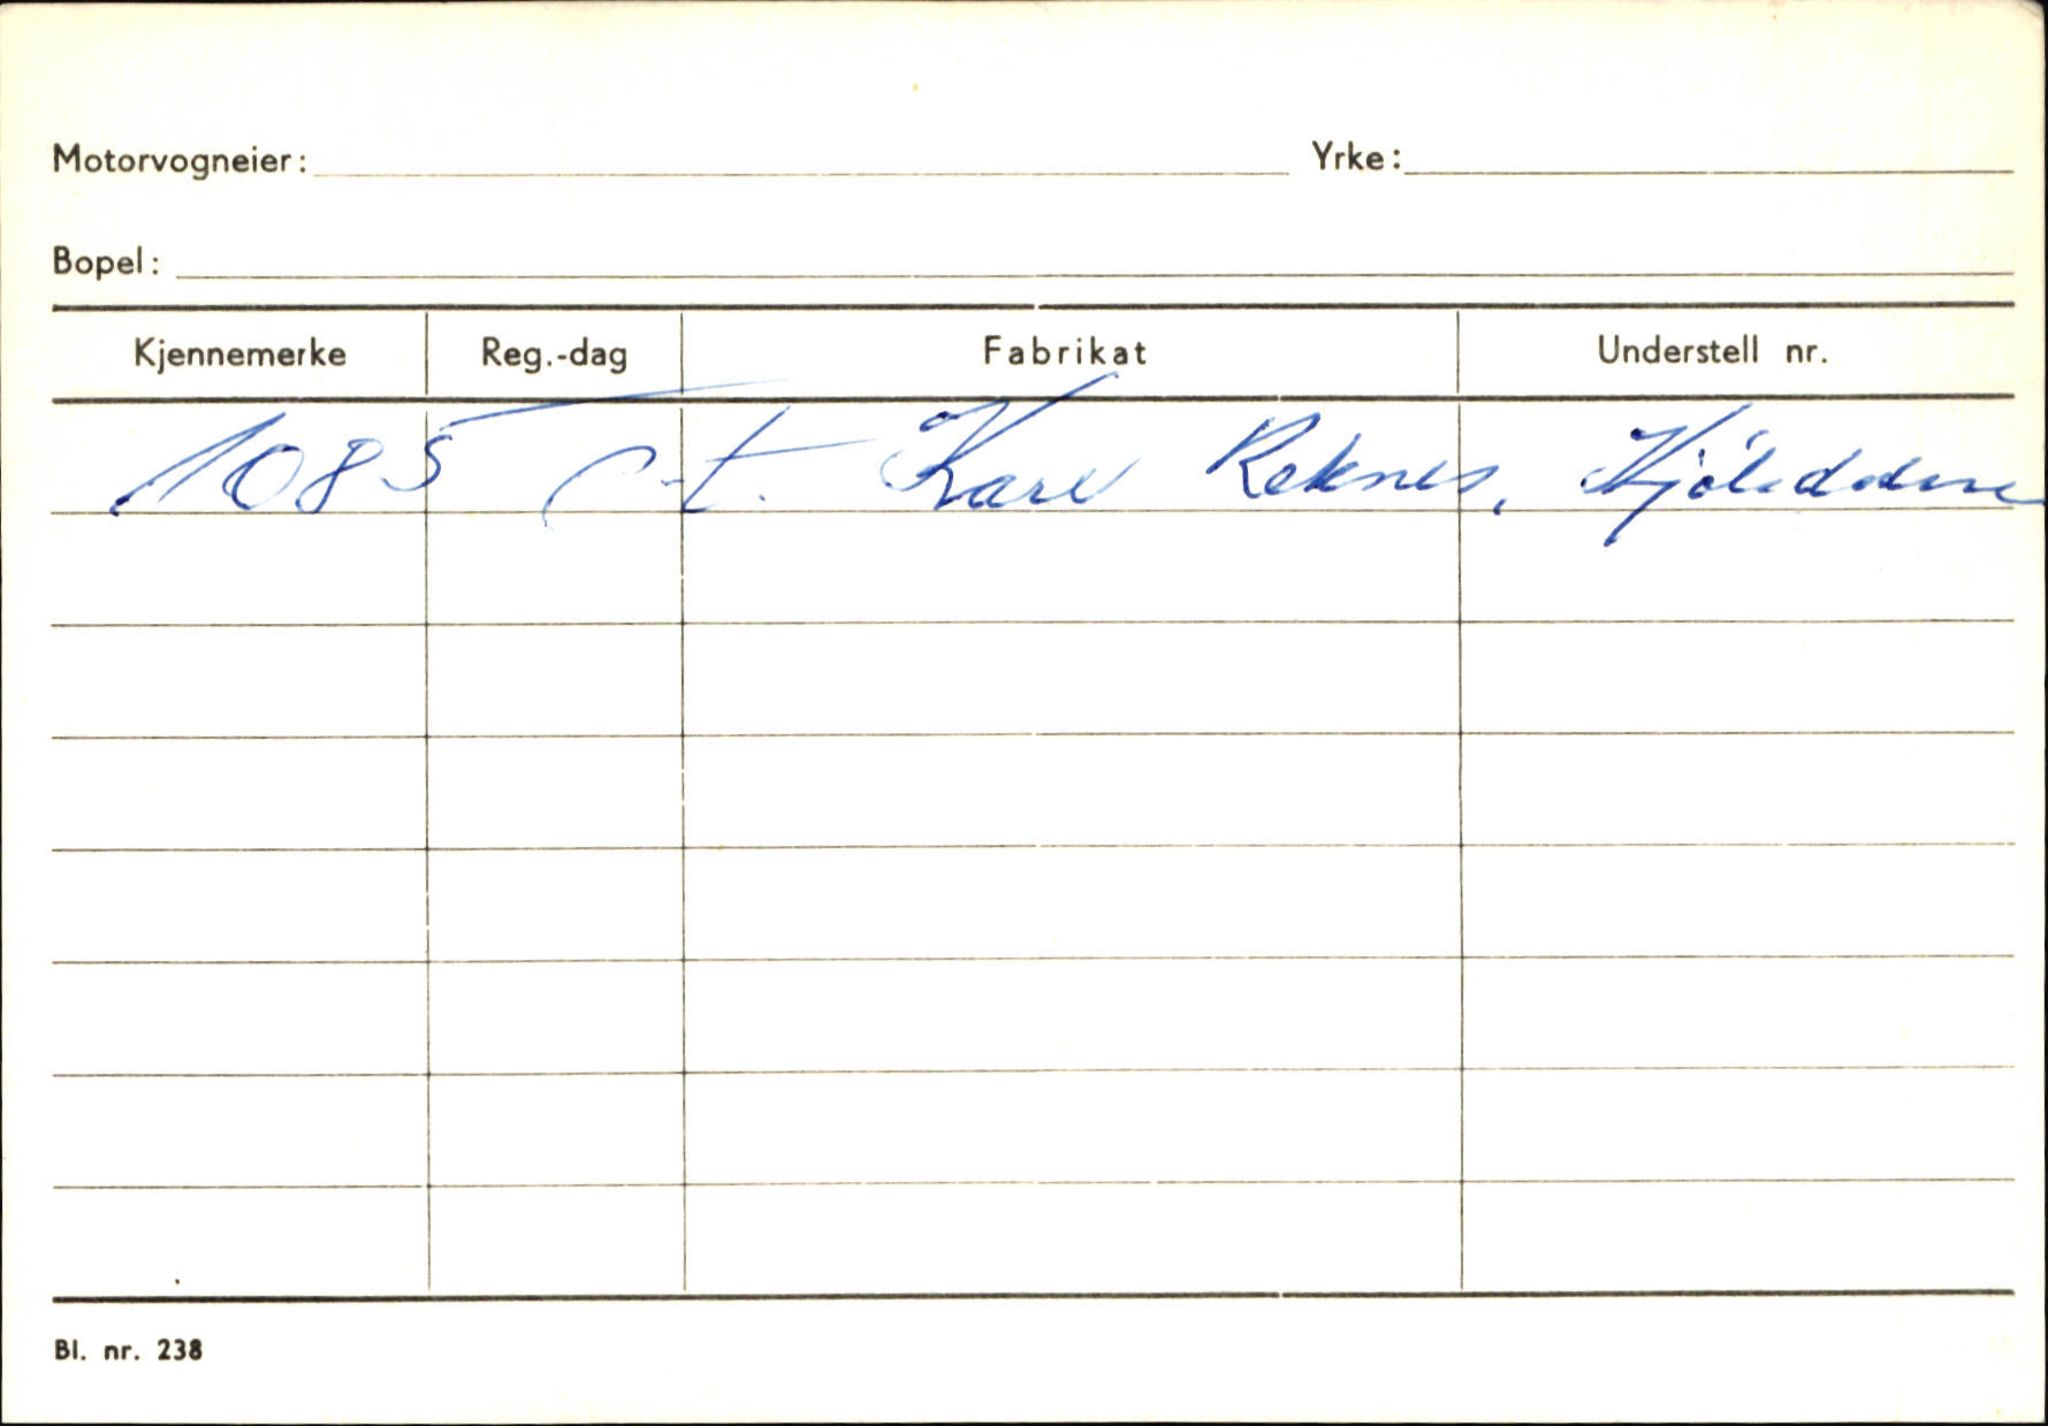 Motorvogneier: Yrke:
Bopel:
Kjennemerke Reg.-dag Fabrikat Understell nr.
1085 Kare Reknes,
Bl. nr. 238